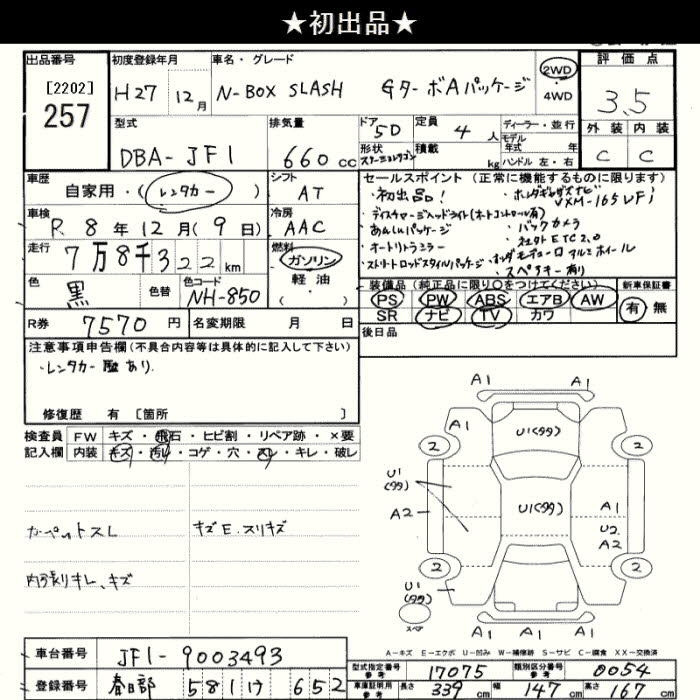 ★初出品★
出品番号
[2202]
257
初度登録年月
H27 12月
車名・グレード
N-BOX SLASH GターボAパッケージ
2WD
・
4WD
評価点
3.5
外装 内装
C C
型式
DBA-JF1
排気量
660cc
ドア
5D
形状
ステーションワゴン
定員
4人
積載
kg
ディーラー・並行
モデル
年式 年
ハンドル 左・右
車歴
自家用・(レンタカー)
シフト
AT
車検
R 8年12月(9日)
冷房
AAC
走行
7万8千322km
燃料
ガソリン
軽油
( )
色
黒
色替
色コード
NH-850
R券 7570円
名変期限 月 日
セールスポイント (正常に機能するものに限ります)
・初出品!
・ディスチャージヘッドライト(オートコントロール有)
・あんしんパッケージ
・オートリトラミラー
・ストリートロッドスタイルパッケージ
・ホンダギャザズナビ
VXM-165VFi
・バックカメラ
・社外ETC2.0
・ホンダモデューロアルミホイール
・スペアキー有り
装備品 (純正品に限り○をつけてください)
PS PW ABS エアB AW
SR ナビ TV カワ
新車保証書
有・無
後日品
注意事項申告欄(不具合内容等は具体的に記入して下さい)
・レンタカー歴あり
修復歴 有 [箇所 ]
検査員
記入欄
FW キズ・飛石・ヒビ割・リペア跡・×要
内装 キズ・汚レ・コゲ・穴・スレ・キレ・破レ
カーペットスレ
キズE.スリキズ
内張りキレ、キズ
A1 A1
A1
U1(タタ)
2 2
U1
(タタ)
A2
U1(タタ)
A1
U2
A2
2 2
U1
(タタ)
スペア
A1 A1 A1
A-キズ E-エクボ U-凹み W-補修跡 S-サビ C-腐食 XX-交換済
車台番号 JF1-9003493
登録番号 春日部 581 け 652
型式指定番号
参考
17075
類別区分番号
参考
0054
車庫証明用
参考
長さ 339cm 幅 147cm 高さ 167cm